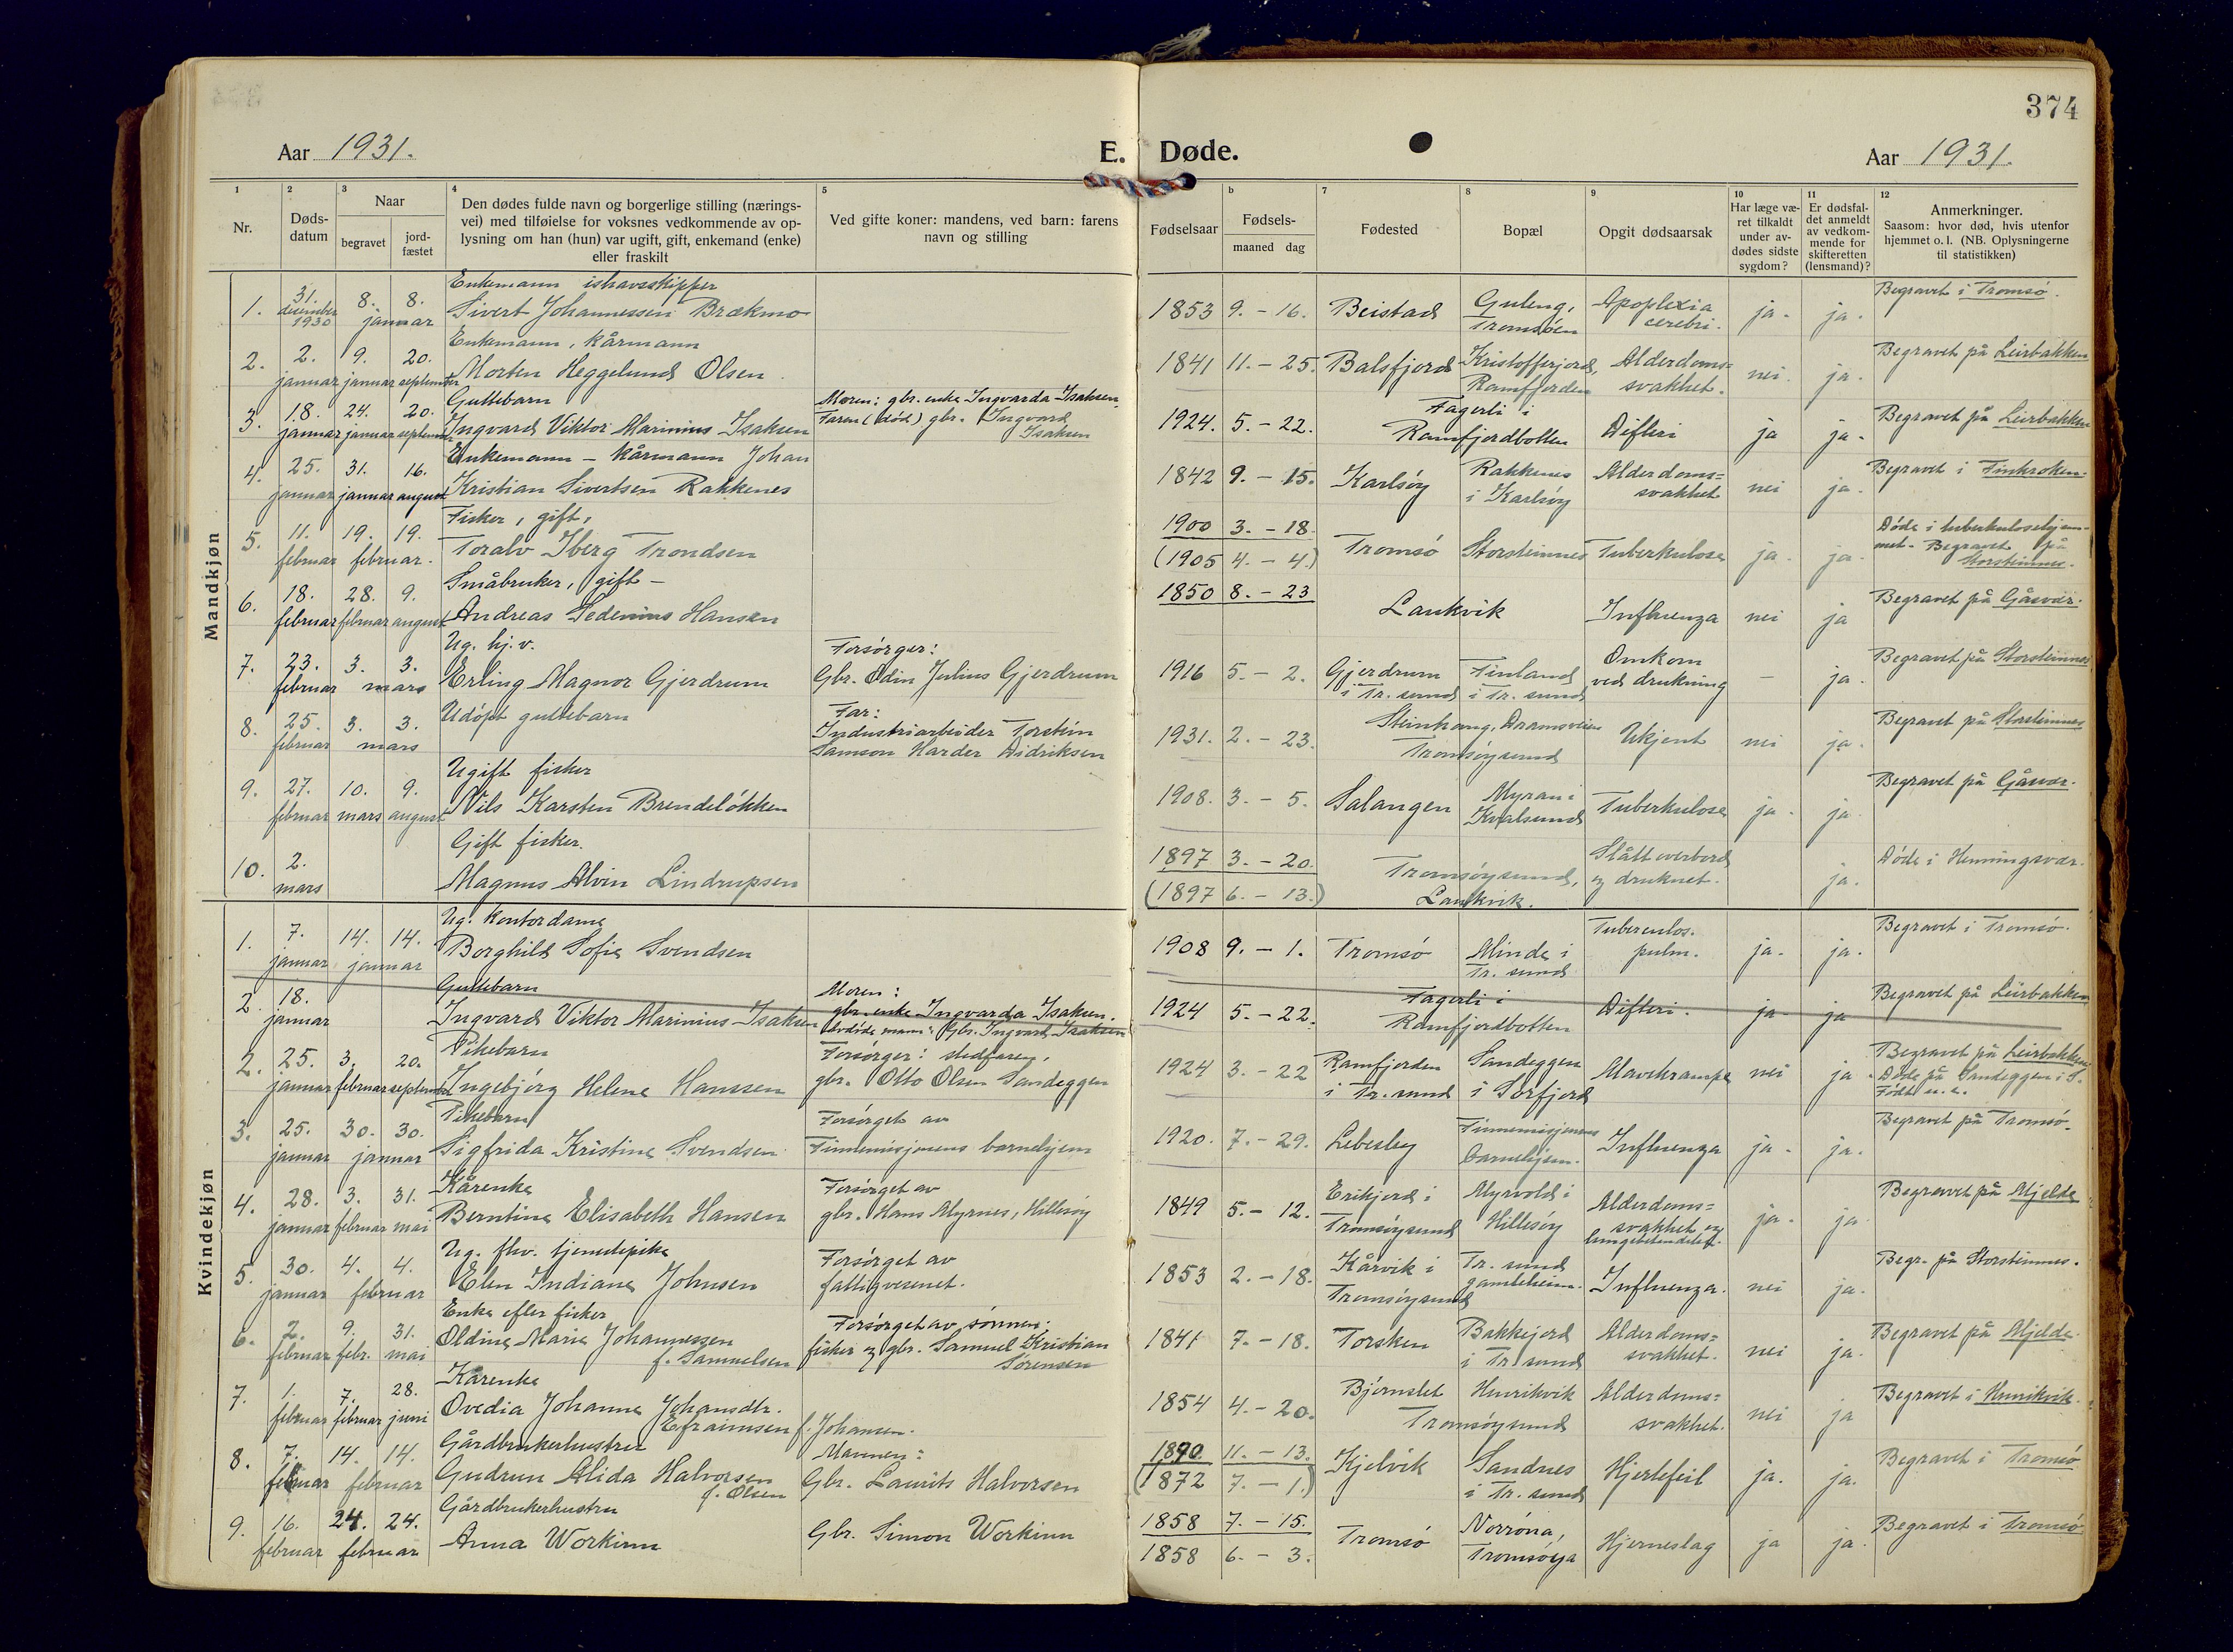 374
Aar 1931.
E. Døde.
Aar 1931.
1 2 3 4 5 b 7 8 9 10 11 12
Nr.
Døds-
datum
Naar
begravet
jord-
fæstet
Den dødes fulde navn og borgerlige stilling (nærings-
vei) med tilføielse for voksnes vedkommende av op-
lysning om han (hun) var ugift, gift, enkemand (enke)
eller fraskilt
Ved gifte koner: mandens, ved barn: farens
navn og stilling
Fødselsaar
Fødsels-
maaned dag
Fødested
Bopæl
Opgit dødsaarsak
Har læge væ-
ret tilkaldt
under av-
dødes sidste
sygdom?
Er dødsfal-
det anmeldt
av vedkom-
mende for
skifteretten
(lensmand)?
Anmerkninger.
Saasom: hvor død, hvis utenfor
hjemmet o. l. (NB. Oplysningerne
til statistikken)
Mandkjøn
1. 31. desember 1930 8. 8. januar
Enkemann ishavsskipper
Sivert Johannessen Brækmo
1853 9. - 16. Beistad Guleng, Tromsöen Apoplexia cerebri. ja. ja. Begravet i Tromsö.
2. 2. januar 9. januar 20. september
Enkemann, kårmann
Morten Heggelund Olsen
1841 11. - 25. Balsfjord Kristofferjord, Ramfjorden Alderdoms= svakhet. nei. ja. Begravet på Leirbakken
3. 18. januar 24. januar 20. september
Guttebarn
Ingvard Viktor Marinius Isaksen
Moren: gbr. enke Ingvarda Isaksen.
Faren (död) gbr. Ingvard Isaksen
1924. 5. - 22. Fagerli i Ramfjordbotten Difteri ja ja. Begravet på Leirbakken
4. 25. januar 31. januar 16. august
Enkemann - kårmann Johan
Kristian Sivertsen Rakkenes
1842 9. - 15. Karlsöy Rakkenes i Karlsöy Alderdoms= svakhet nei ja. Begravet i Finkroken.
5. 11. februar 19. 19. februar.
Fisker, gift,
Toralv Iberg Trondsen
1900 3. - 18.
(1905 4. - 4.)
Tromsö Storsteinnes Tuberkulose ja. ja. Döde i tuberkulosehjem-
met. Begravet på
Storsteinnes.
6. 18. februar 28. februar 9. august
Småbruker, gift -
Andreas Pedenius Hansen
1850 8. - 23 Laukvik Influenza nei ja Begravet på Gåsvær.
7. 23. februar 3. 3. mars
Ug. hj. v.
Erling Magnor Gjerdrum
Forsörger:
Gbr. Odin Julius Gjerdrum
1916 5. - 2. Gjerdrum i Tr. sund Finland i Tr. sund Omkom ved drukning - ja. Begravet på Storsteinnes
8. 25. februar 3. 3. mars
Udöpt guttebarn
Far:
Industriarbeider Torstein
Samson Harder Didriksen
1931. 2. - 23. Steinhaug, Dramsveien Tromsöysund Ukjent nei ja. Begravet på Storsteinnes
9. 27. februar 10. mars 9. august
Ugift fisker
Nils Karsten Brendelökken
1908. 3. - 5. Salangen Myran i Kvalsund Tuberkulose ja. ja. Begravet på Gåsvær.
10. 2. mars
Gift fisker.
Magnus Alvin Lindrupsen
1897 3. - 20.
(1897 6. - 13.)
Tromsöysund, Laukvik. Slått overbord og druknet. ja. Döde i Henningsvær.
Kvindekjøn
1. 7. januar 14. 14. januar
Ug. kontordame
Borghild Sofie Svendsen
1908 9. - 1. Tromsö Minde i Tr. sund Tuberculos. pulm. ja. ja. Begravet i Tromsö.
2. 18. januar
Guttebarn
Ingvard Viktor Marinius Isaksen
Moren:
gbr. enke Ingvarda Isaksen.
Avdöde mann: Gbr. Ingvard Isaksen
1924 5. - 22. Fagerli i Ramfjordbotten Difteri. ja ja Begravet på Leirbakken
2. 25. januar 3. februar 20. september
Pikebarn
Ingebjörg Helene Hanssen
Forsörger: stedfaren,
gbr. Otto Olsen Sandeggen
1924 3. - 22 Ramfjorden i Tr. sund Sandeggen i Sörfjord Mavekrampe nei ja. Begravet på Leirbakken
Döde på Sandeggen i S.
Födt u. e.
3. 25. januar 30. 30. januar
Pikebarn
Sigfrida Kristine Svendsen
Forsörget av
Finnemisjonens barnehjem
1920. 7. - 29. Lebesby Finnemisjonens barnehjem. Influenza ja. ja. Begravet på Tromsö.
4. 28. januar 3. februar 31. mai
Kårenke
Berntine Elisabeth Hansen
Forsörget av
gbr. Hans Myrnes, Hillesöy
1849 5. - 12. Erikjord i Tromsöysund Myrvold i Hillesöy Alderdoms= svakhet og lungebetendelse. ja. ja. Begravet på Mjelde
5. 30. januar 4. 4. februar
Ug. fhv. tjenestepike
Elen Indiane Johnsen
Forsörget av
fattigvesenet.
1853 2. - 18. Kårvik i Tromsöysund Tr. sund gamleheim. Influenza. nei ja. Begr. på Storsteinnes.
6. 2. februar 9. febr. 31. mai
Enke efter fisker
Oldine Marie Johannessen
f. Samuelsen
Forsörget av sönnen:
fisker og gbr. Samuel Kristian
Sörensen
1841 7. - 18. Torsken Bakkejord i Tr. sund Alderdoms= svakhet. nei ja. Begravet på Mjelde.
7. 1. februar 7. februar 28. juni
Kårenke
Ovedia Johanne Johansdtr.
Efraimsen f. Johansen.
1854 4. - 20. Bjørnslet Henrikvik Tromsöysund Alderdoms= svakhet. nei ja Begravet i Henrikvik.
8. 7. februar 14. 14. februar
Gårdbrukerhustru
Gudrun Alida Halvorsen
f. Olsen
Mannen:
Gbr. Laurits Halvorsen
1890. 11. - 13.
(1872 7. - 1.)
Kjelvik Sandnes i Tr. sund Hjertefeil ja. ja. Begravet i Tromsö
9. 16. februar 24. 24. februar
Gårdbrukerhustru
Anna Workinn
Gbr. Simon Workinn
1858 7. - 15.
1858 6. - 3.
Tromsö Norröna, Tromsöya Hjerneslag ja ja. Begravet i Tromsö